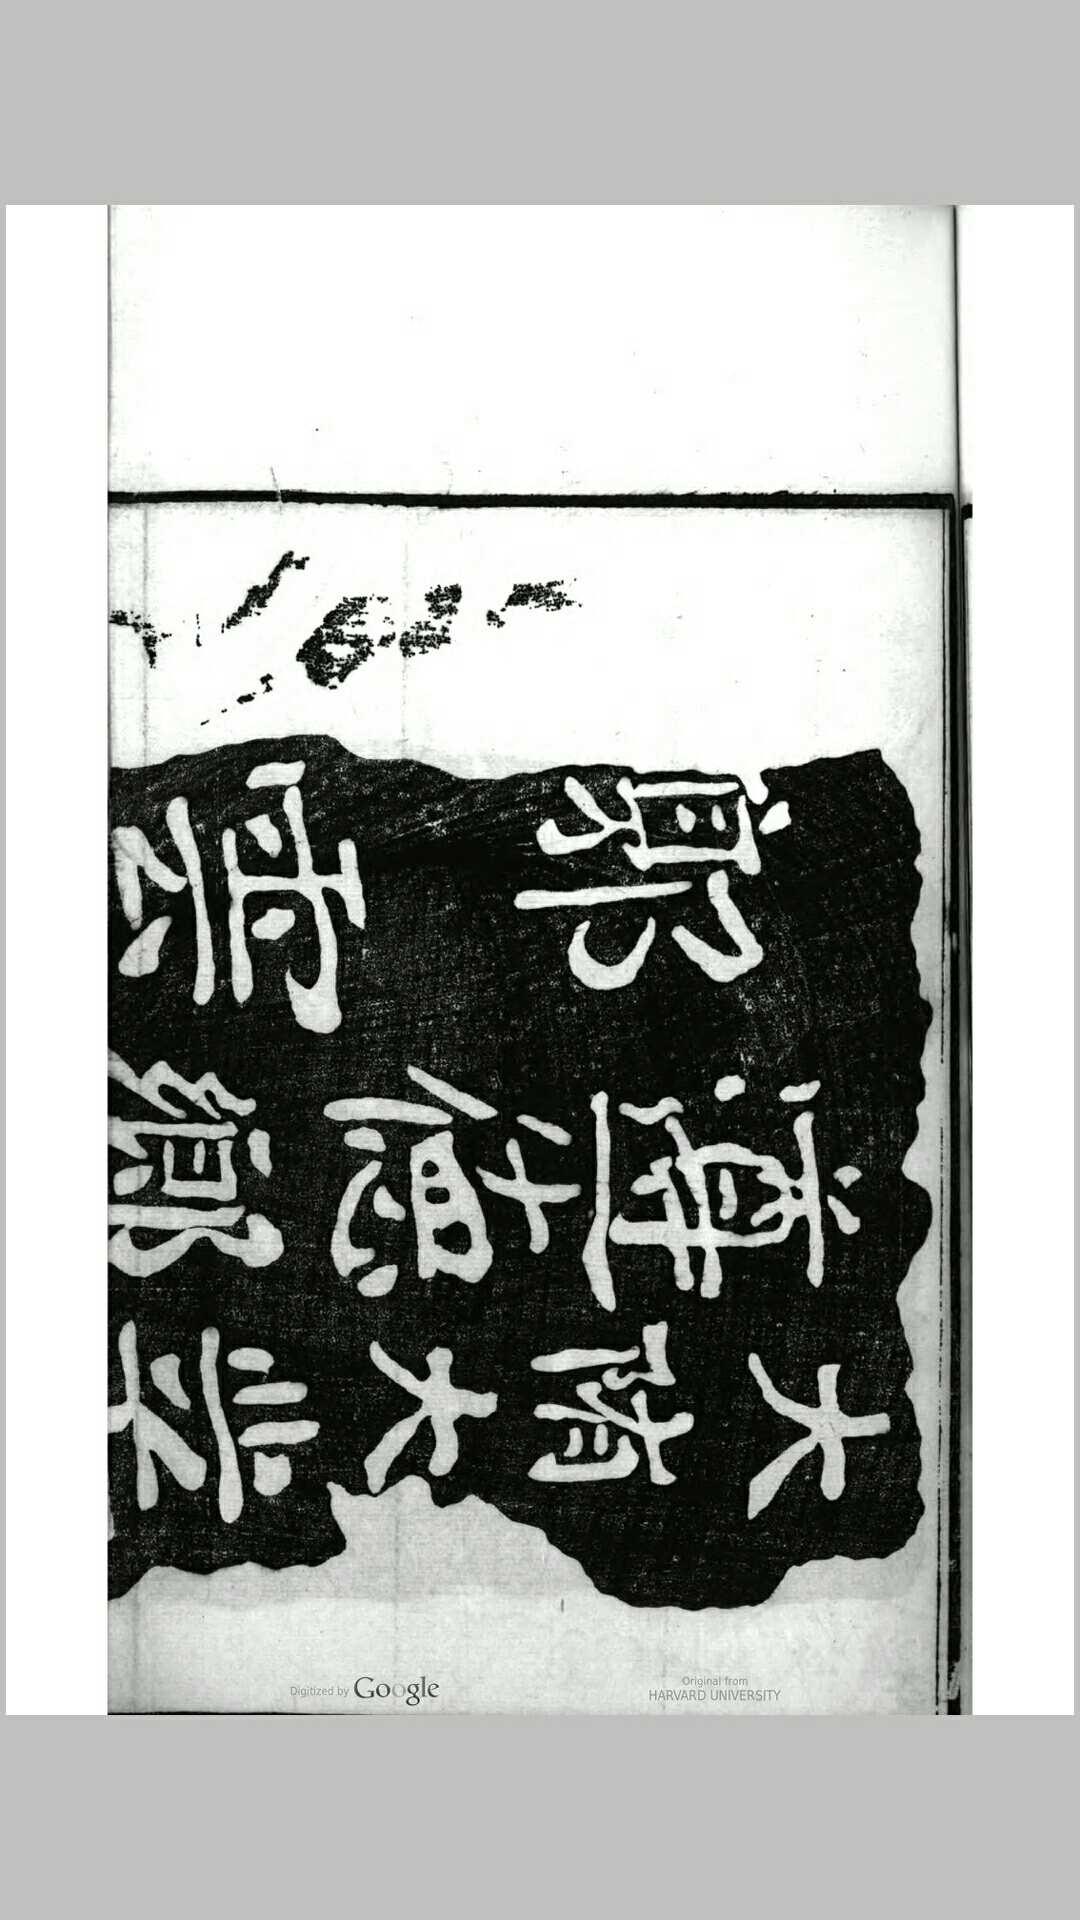 大隋大業
德鄉
鄭雲
Digitized by Google
Original from
HARVARD UNIVERSITY